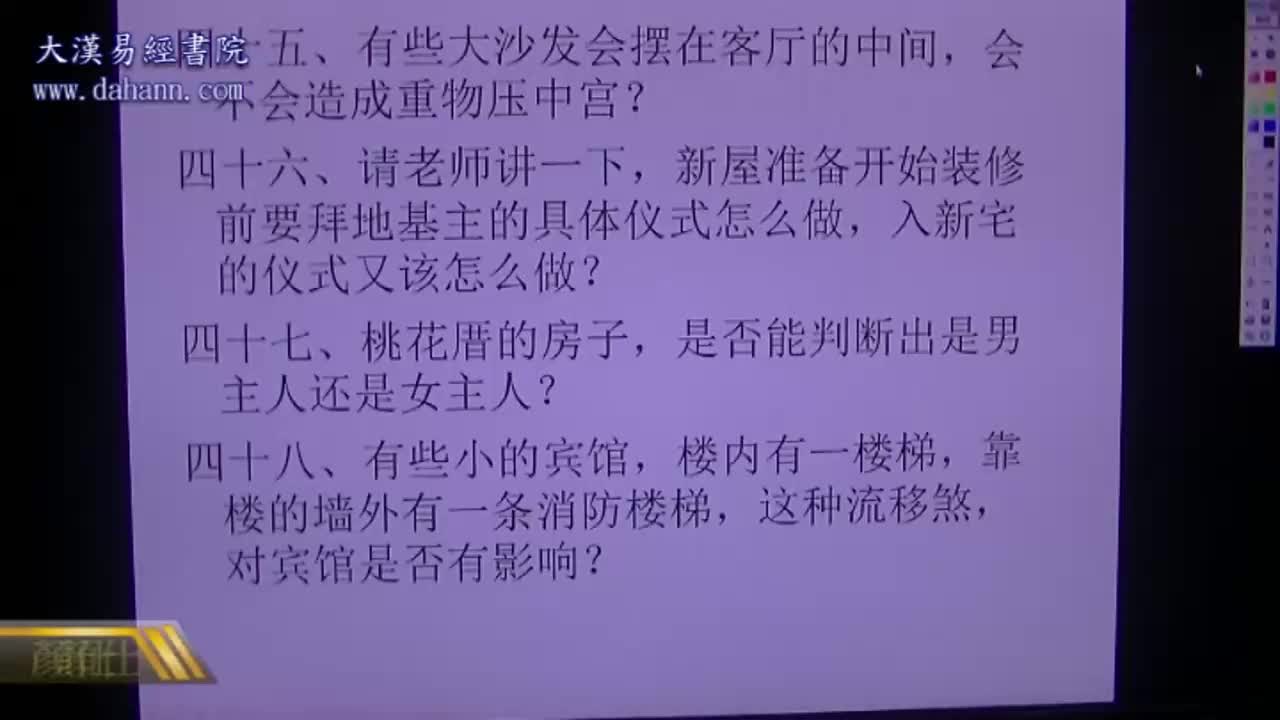 大漢易經書院
www.dahann.com
十五、有些大沙发会摆在客厅的中间，会
不会造成重物压中宫？
四十六、请老师讲一下，新屋准备开始装修
前要拜地基主的具体仪式怎么做，入新宅
的仪式又该怎么做？
四十七、桃花厝的房子，是否能判断出是男
主人还是女主人？
四十八、有些小的宾馆，楼内有一楼梯，靠
楼的墙外有一条消防楼梯，这种流移煞，
对宾馆是否有影响？